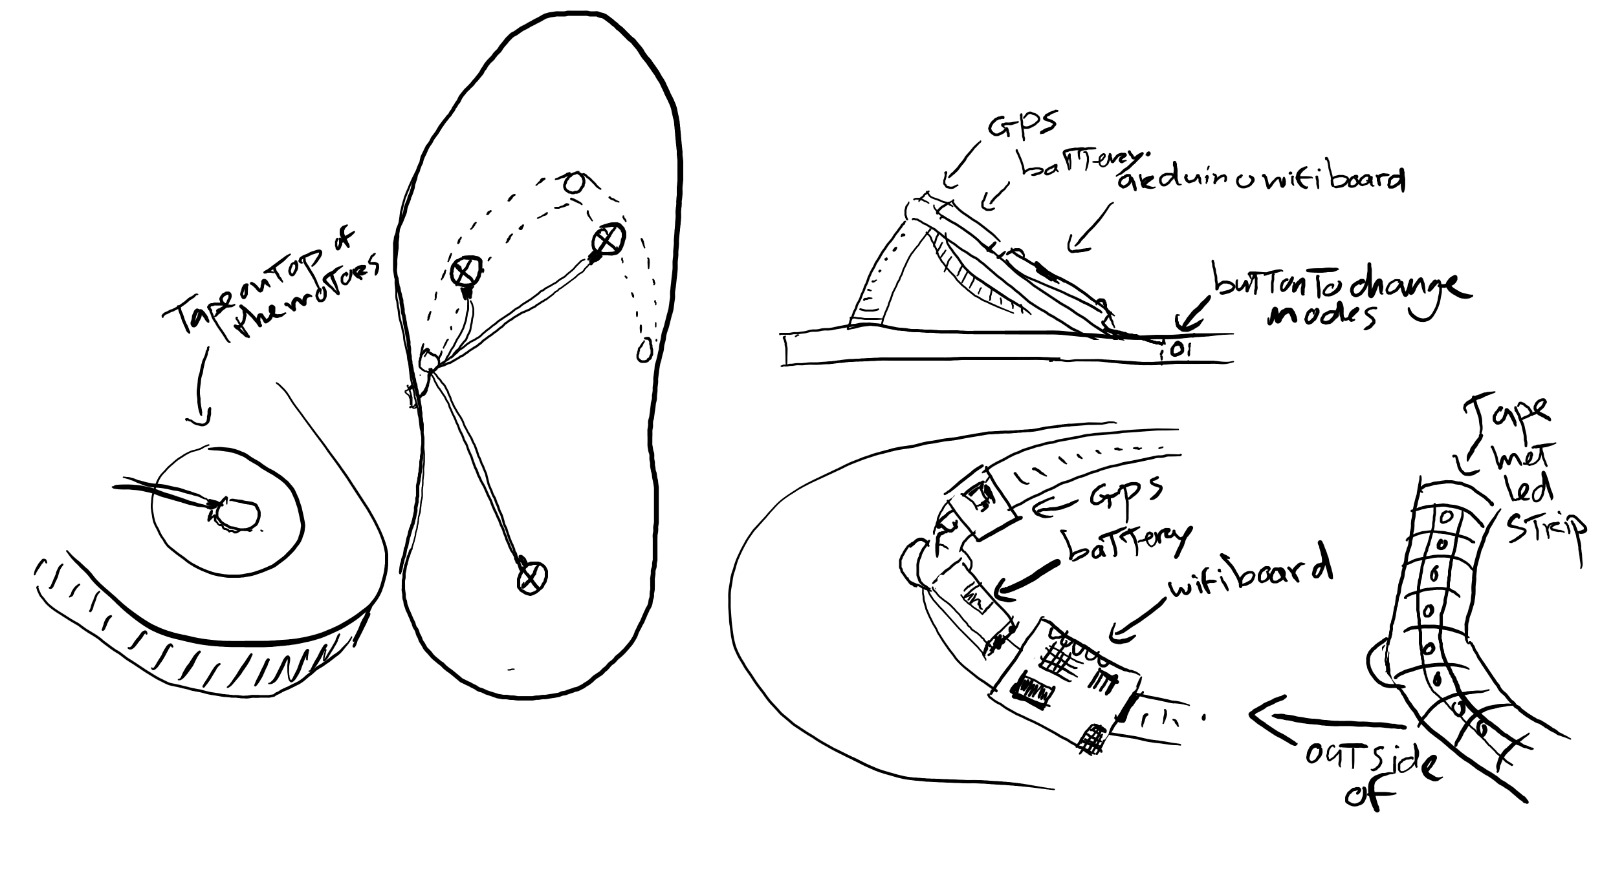 Tape on Top of
the motors
GPS
baTTery.
arduino wifi board
buTTon To change
modes
GPS
baTTery
wifi board
Tape
meT
Led
STrip
ouTside
of